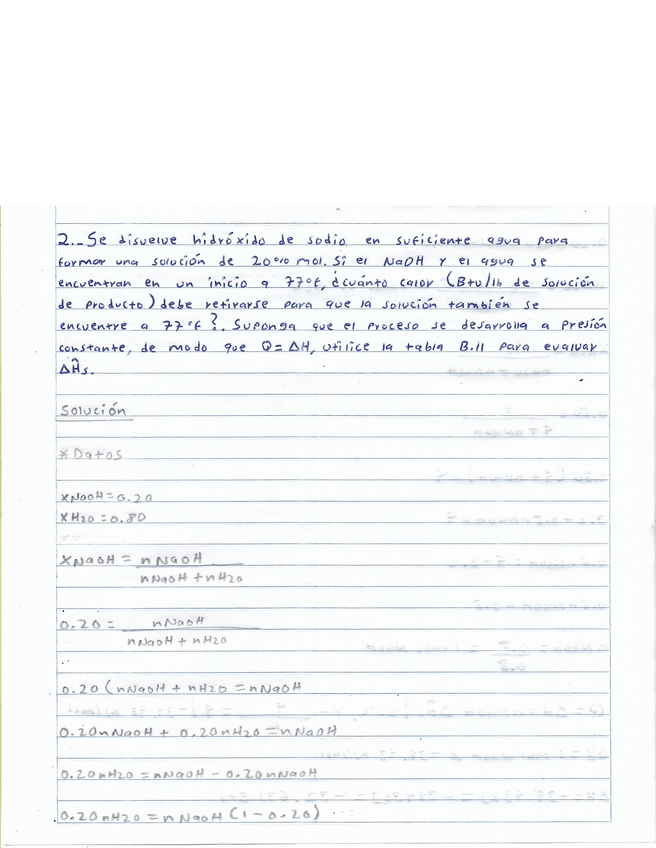 2.- Se disuelve hidróxido de sodio en suficiente agua para
formar una solución de 20% mol. Si el NaOH y el agua se
encuentran en un inicio a 77°f, ¿cuánto calor (Btu/lb de solución
de producto) debe retirarse para que la solución también se
encuentre a 77°f?. Suponga que el proceso se desarrolla a presión
constante, de modo que Q=ΔH, utilice la tabla B.11 para evaluar
ΔĤs.
Solución
*Datos
XNaOH=0.20
XH2O=0.80
XNaOH = nNaOH
nNaOH + nH2O
0.20 = nNaOH
nNaOH + nH2O
0.20 (nNaOH + nH2O = nNaOH
0.20nNaOH + 0.20nH2O = nNaOH
0.20nH2O = nNaOH - 0.20nNaOH
0.20nH2O = nNaOH (1-0.20)